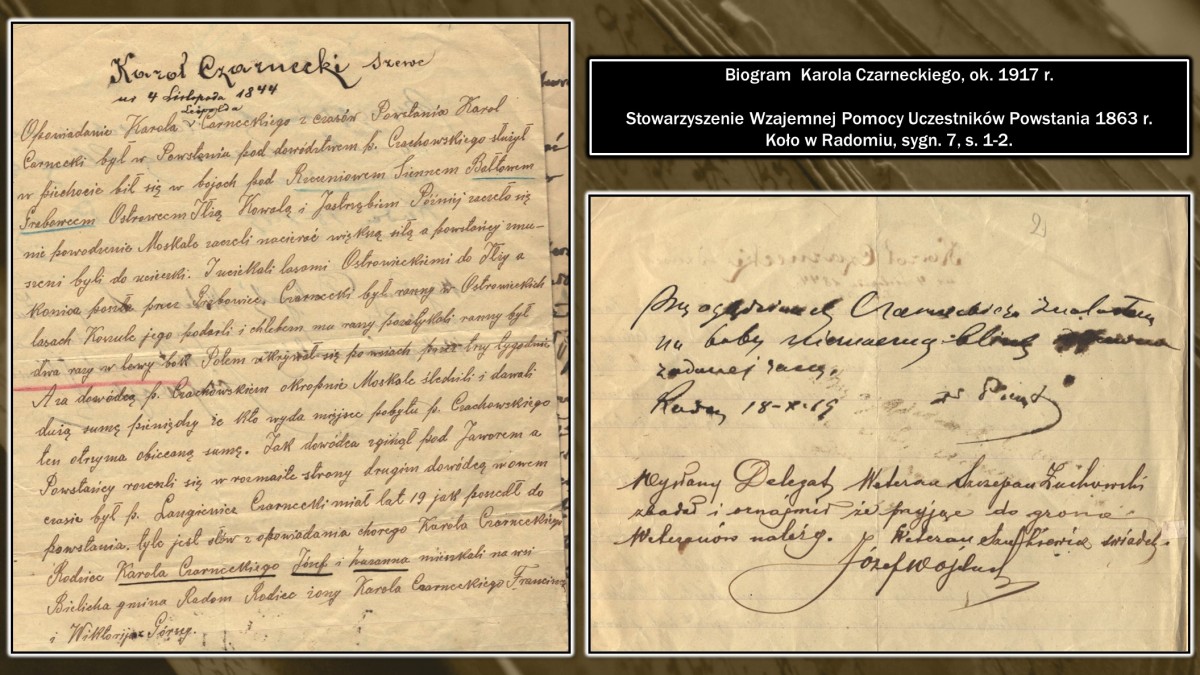 Karol Czarnecki szewc
ur 4 Listopada 1844
Leopolda
Opowiadanie Karola Carneckiego z czasów Powstania Karol
Carnecki był w Powstaniu pod dowództwem p. Czachowskiego służył
w piechocie bił się w bojach pod Rzeczniowem Siennem Bałtowem
Grabowcem Ostrowcem Iłżą Kowalą i Jastrzębiem Później zaczeło się
nie powodzenie Moskale zaczeli nacierać większą siłą a powstańcy zmu-
szeni byli do ucieczki. I uciekali lasami Ostrowieckiemi do Iłży a
konica poszła przez Grabowiec, Czarnecki był ranny w Ostrowieckich
lasach Koszule jego podarli i chlebem mu rany pozatykali ranny był
dwa razy w lewy bok Potem ukrywał się po wsiach przez trzy tygodnie
A za dowódcą p. Czachowskiem okropnie Moskale śledzili i dawali
dużą sumę pieniędzy że kto wyda miejsce pobytu p. Czachowskiego
ten otrzyma obiecaną sumę. Jak dowódca zginął pod Jaworem a
Powstańcy rozeszli się w rozmaite strony drugim dowódcą w owem
czasie był p. Langiewicz Czarnecki miał lat 19 jak poszedł do
powstania, tyle jest słów z opowiadania chorego Karola Czarneckiego
Rodzice Karola Czarneckiego Józef i Zuzanna mieszkali na wsi
Bielicha gmina Radom Rodzice żony Karola Czarneckiego Franciszek
i Wiktoryja Górug.
Biogram Karola Czarneckiego, ok. 1917 r.
Stowarzyszenie Wzajemnej Pomocy Uczestników Powstania 1863 r.
Koło w Radomiu, sygn. 7, s. 1-2.
2
Przy oględzinach Czarneckiego znalazłem
na boku bliznę
zadanej rany.
Radom 18-X-19
Wysłany Delegat Weteran Szczepan Żuchowski
zbadał i oznajmił że przyjęc do grona
Weteranów należy. Weteran świadek
Józef Wójcik